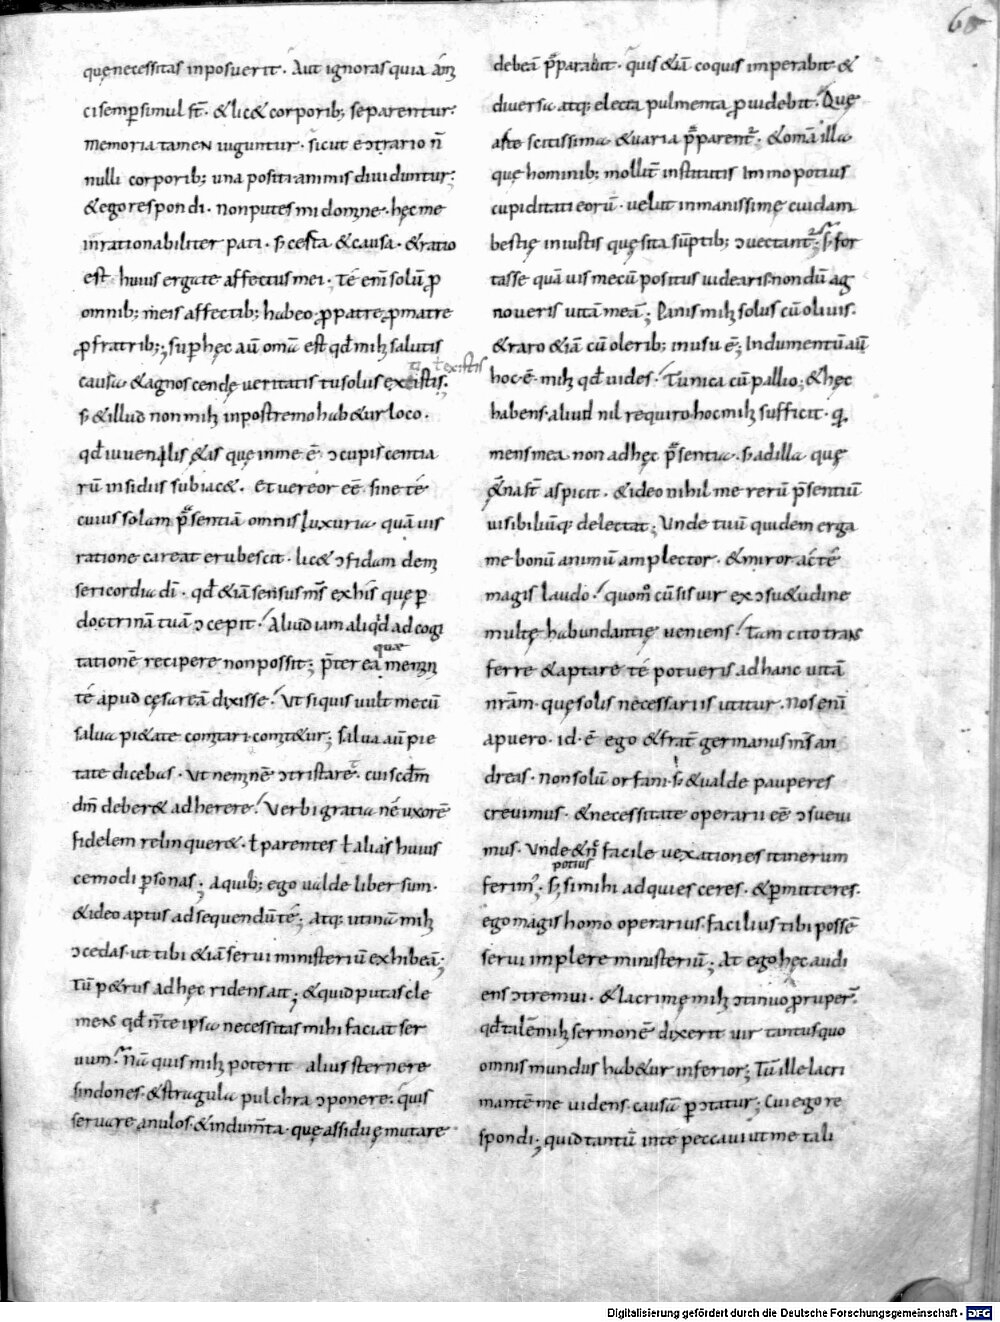 60
quę necessitas inposuerit. Aut ignoras quia amı
ci semp simul st̄. & lic& corporib; separentur.
memoria tamen iuguntur. sicut ecɔtrario n̄
nulli corporib; una positi animis diuiduntur;
& ego respondi. non putes mi domne. hęc me
inrationabiliter pati. s; certa & causa. & ratio
est huius erga te affectus mei. Te eni solū p
omnib; meis affectib; habeo. p patre p matre
p fratrib;; sup hęc aū oma est qd mihi salutis
causa & agnoscendę ueritatis tu solus existis;
ł existis
s; & illud non mihi in postremo hab&ur loco.
qd iuuenilis &as quę in me ē ɔcupiscentia
rū insidiis subiac&. Et uereor eē sine te
cuius solam p̄sentiā omnis luxuria quāuis
ratione careat erubescit. lic& ɔfidam de mi
sericordia dī. qd &iā sensus ms̄ ex his quę p
doctrinā tuā ɔcepit. Aliud iam aliqd ad cogi
tationē recipere non possit; p̄terea memini
quę
te apud cęsareā dixisse. Ut si quis uult mecū
salua pi&ate comitari comit&ur; salua aū pie
tate dicebas. Ut neminē ɔtristar&. cui scdm̄
dm̄ deber& adherere. Verbi gratia ne uxorē
fidelem relinquer&. ł parentes ł alias huius
cemodi psonas; A quib; ego ualde liber sum.
& ideo aptus ad sequendū te; Atq; utinā mihi
ɔcedas. ut tibi &iā serui ministeriū exhibeā;
Tū p&rus ad hęc ridens ait; & quid putas cle
mens qd n̄ te ipsa necessitas mihi faciat ser
uum. Nā quis mihi poterit alius sternere
sindones. & stragula pulchra ɔponere. quis
seruare anulos. & indumta. quę assiduę mutare
debeā p̄parabit. quis &iā coquis imperabit &
diuersa atq; electa pulmenta puidebit. Quę
arte scitissima & uaria p̄parent̄. & omā illa
quę hominib; mollit̄ institutis Immo potius
cupiditati eorū. uelut inmanissimę cuidam
bestię iniustis quęsita sūptib; ɔuectant̄. s; for
tasse quāuis mecū positus uidearis. non dū ag
noueris uitā meā; Panis mihi solus cū oliuis.
& raro &iā cū olerib; in usu ē; Indumentū aū
hoc ē mihi qd uides. Tunica cū pallio; & hęc
habens. aliud nil requiro. hoc mihi sufficit. q
mens mea non ad hęc p̄sentia. s; ad illa quę
&na st̄ aspicit. & ideo nihil me rerū p̄sentiū
uisibiliūq; delectat; Unde tuū quidem erga
me bonū animū amplector. & miror ac te
magis laudo. quom̊ cū sis uir ex ɔsu&udine
multę habundantię ueniens. Tam cito trans
ferre & aptare te potueris ad hanc uitā
nrām. quę solis necessariis utitur. Nos eni
a puero. id. ē ego & frat̄ germanus ms̄ an
dreas. non solū orfani. s; & ualde pauperes
creuimus. & necessitate operarii eē ɔsueui
mus. Unde & n̄c facile uexationes itinerum
potius
ferim̄. s; si mihi adquiesceres. & pmitteres.
ego magis homo operarius. facilius tibi possē
serui implere ministeriū; At ego hęc audi
ens ɔtremui. & lacrimę mihi ɔtinuo pruper̄.
qd talē mihi sermonē dixerit uir tantus quo
omnis mundus hab&ur inferior; Tū ille lacri
mantē me uidens. causā pɔtatur; Cui ego re
spondi; quid tantū in te peccaui ut me tali
Digitalisierung gefördert durch die Deutsche Forschungsgemeinschaft - DFG